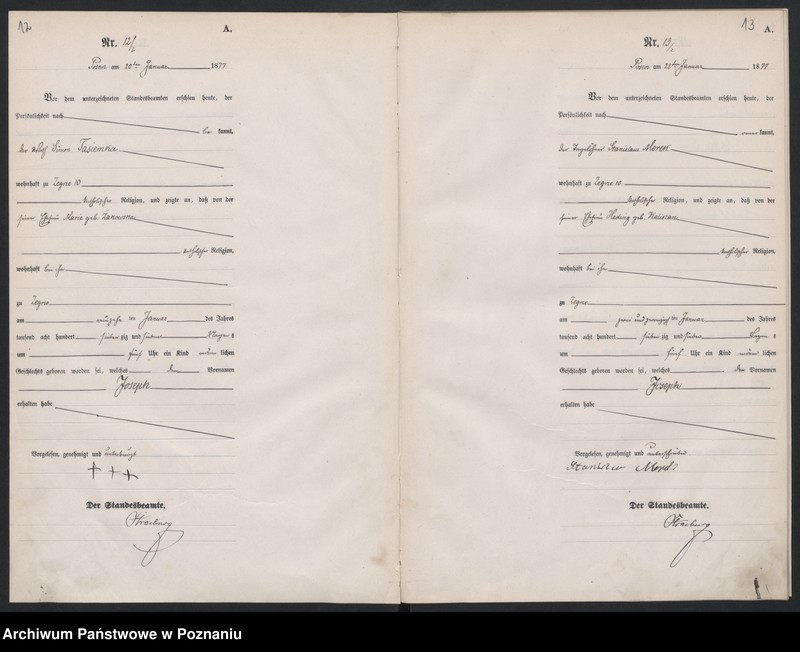 12
A.
Nr. 12/
am 20ten Januar 1877
Vor dem unterzeichneten Standesbeamten erschien heute, der
Persönlichkeit nach
be kannt,
Der Tasiemka
wohnhaft zu Zegne 10
katholischer Religion, und zeigte an, daß von der
seiner Ehefrau Marie geb.
katholischer Religion,
wohnhaft bei ihm
zu Zegne
am ten Januar des Jahres
tausend acht hundert sieben zig und sieben
um fünf Uhr ein Kind männ lichen
Geschlechts geboren worden sei, welches den Vornamen
Joseph
erhalten habe
Vorgelesen, genehmigt und
+ + +
Der Standesbeamte.
13
A.
Nr. 13/
am 22ten Januar 1877
Vor dem unterzeichneten Standesbeamten erschien heute, der
Persönlichkeit nach
kannt,
Der Tagelöhner Stanislaus
wohnhaft zu Zegne 10
katholischer Religion, und zeigte an, daß von der
seiner Ehefrau Hedwig geb.
katholischer Religion,
wohnhaft bei ihm
zu Zegne
am zwei und zwanzigsten Januar des Jahres
tausend acht hundert sieben zig und sieben
um fünf Uhr ein Kind männ lichen
Geschlechts geboren worden sei, welches den Vornamen
Joseph
erhalten habe
Vorgelesen, genehmigt und unterschrieben
Der Standesbeamte.
Archiwum Państwowe w Poznaniu